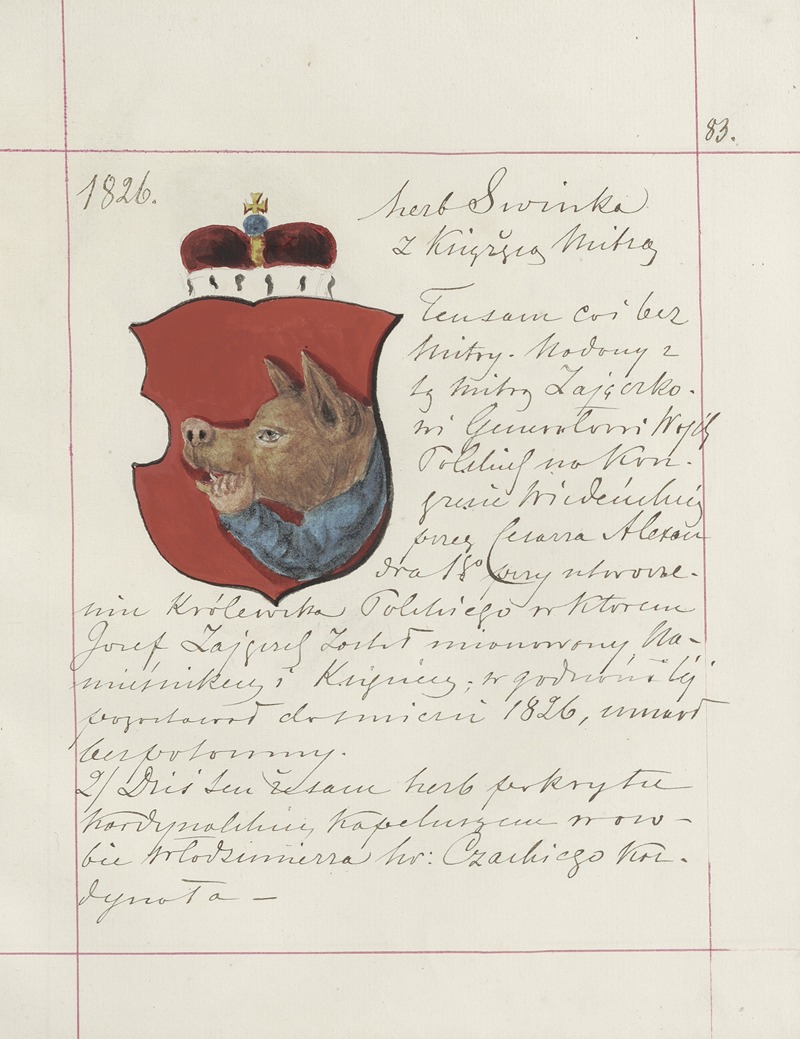 83.
1826.
herb Swinka
z Książęcą Mitrą
Tensam coś bez
Mitry. Nadany z
tą Mitrą Zajączko-
wi Generałowi Wojsk
Polskich na Kon-
gresie Wiedeńskim
przez Cesarza Alexan
dra 1go przy utworze-
niu Królewstwa Polskiego w Ktorem
Josef Zajączek Został mianowany Na-
miestnikiem i Księciem; w godności tej
pozostawał do smierci 1826, umarł
bezpotomny.
2/ Dziś ten żesam herb pokryty
Kardynalskim Kapeluszem w oso-
bie Włodzimierza hr: Czackiego Kar-
dynała —